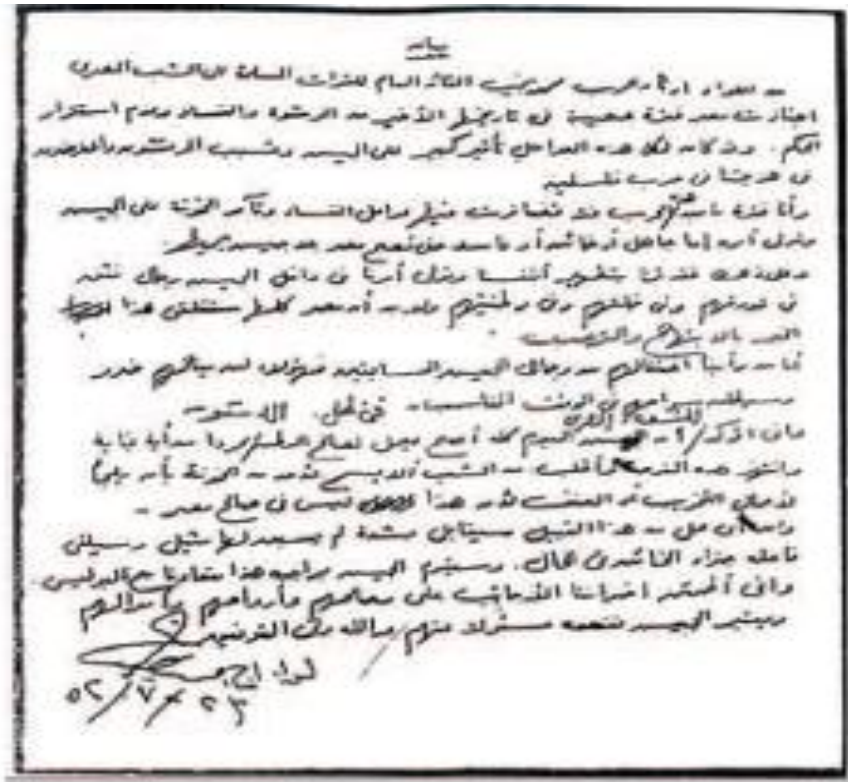 بيان
من اللواء أ.ح محمد نجيب القائد العام للقوات المسلحة إلى الشعب المصرى
اجتازت مصر فترة عصيبة فى تاريخها الأخير من الرشوة والفساد وعدم استقرار
الحكم . وقد كان لكل هذه العوامل تأثير كبير على الجيش وتسبب المرتشون والمغرضون
فى هزيمتنا فى حرب فلسطين
وأما فترة ما بعد الحرب فقد تضافرت فيها عوامل الفساد وتآمر الخونة على الجيش
وتولى أمره إما جاهل أو خائن أو فاسد حتى تصبح مصر بلا جيش يحميها .
وعلى ذلك فقد قمنا بتطهير أنفسنا وتولى أمرنا فى داخل الجيش رجال نثق
فى قدرتهم وفى خلقهم وفى وطنيتهم ولابد أن مصر كلها ستتلقى هذا
الخبر بالابتهاج والترحيب .
أما من رأينا اعتقالهم من رجال الجيش السابقين فهؤلاء لن ينالهم ضرر
وسيطلق سراحهم فى الوقت المناسب
وانى أؤكد للشعب المصرى أن الجيش اليوم كله أصبح يعمل لصالح الوطن فى ظل الدستور مجردا من أية غاية
وانتهز هذه الفرصة وأطلب من الشعب ألا يسمح لأحد من الخونة بأن يلجأ
لأعمال التخريب أو العنف لأن هذا ليس فى صالح مصر
وأن أى عمل من هذا القبيل سيقابل بشدة لم يسبق لها مثيل وسيلقى
فاعله جزاء الخائن فى الحال . وسيقوم الجيش بواجبه هذا متعاونا مع البوليس .
وانى أطمئن اخواننا الأجانب على مصالحهم وأرواحهم وأموالهم
ويعتبر الجيش نفسه مسئولا عنهم والله ولى التوفيق
لواء أ.ح
٢٣/٧/٥٢